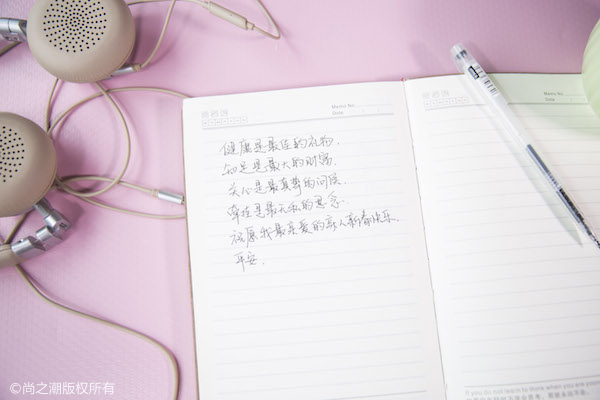 Memo No.
Date
健康是最佳的礼物,
知足是最大的财富,
关心是最真挚的问候,
牵挂是最无私的思念.
祝愿我最亲爱的家人新春快乐,
平安.
Memo No.
Date
If you do not learn to think when you are
©尚之潮版权所有